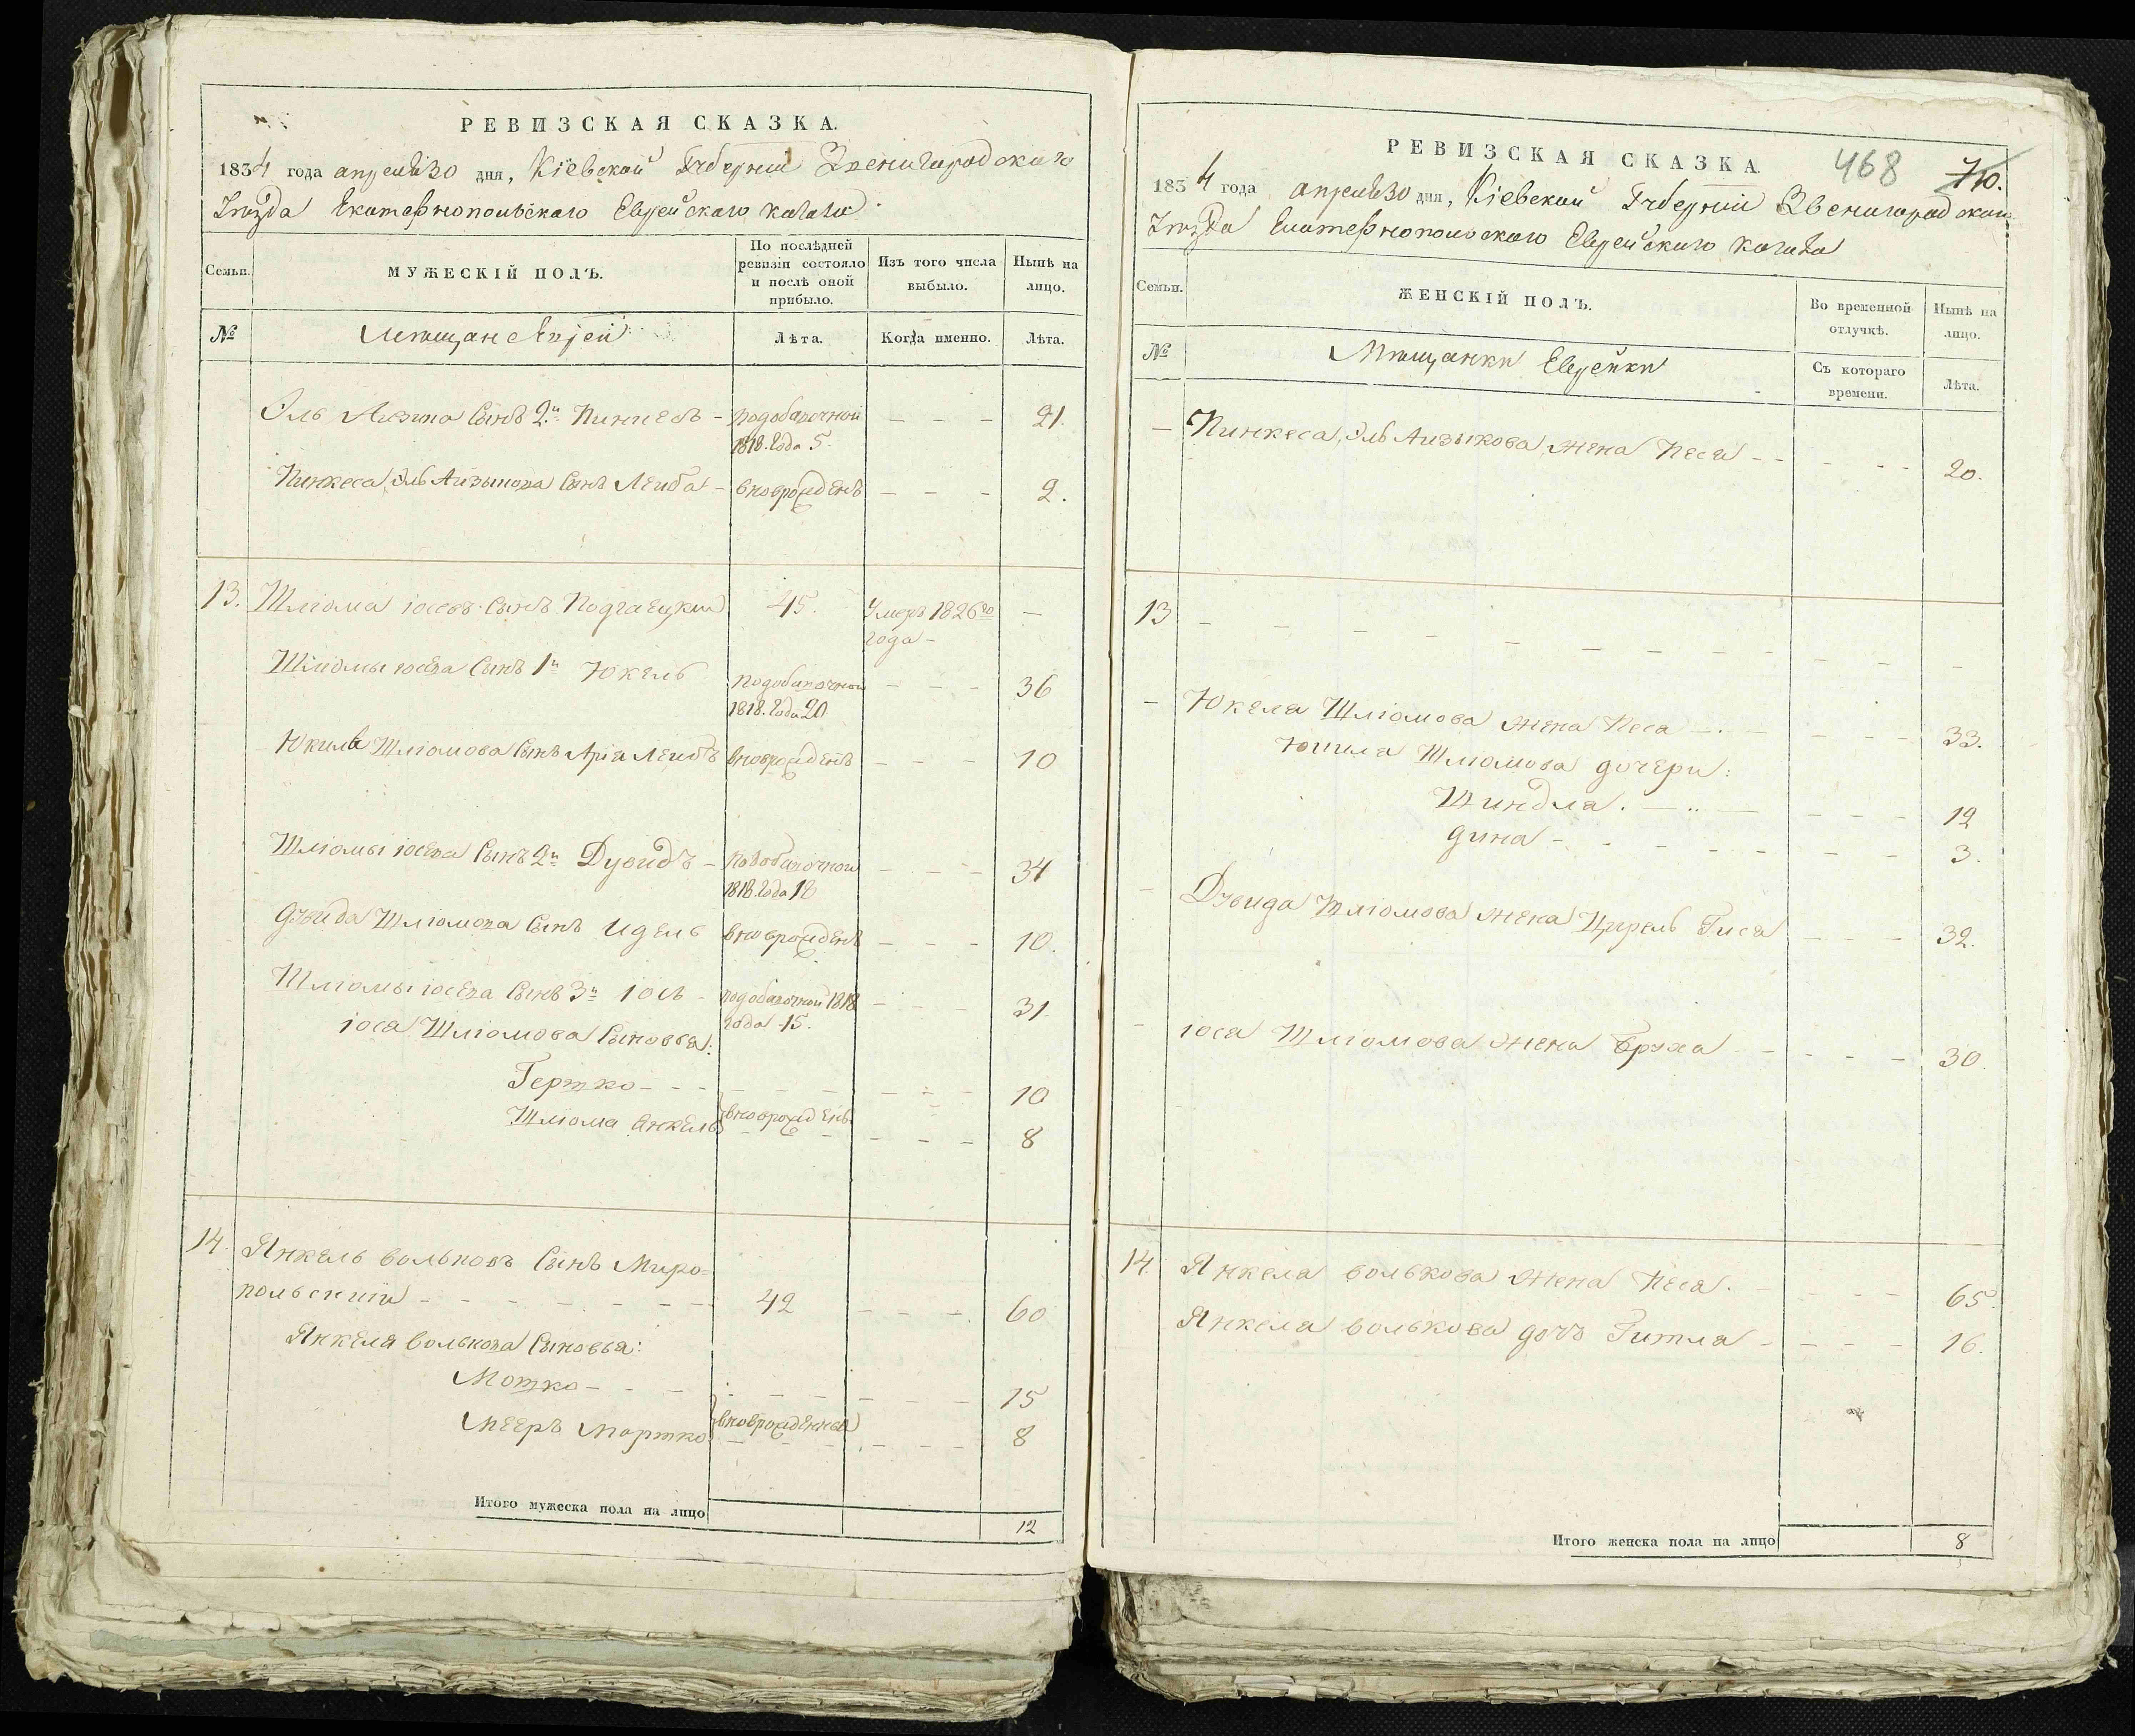 РЕВИЗСКАЯ СКАЗКА.
1834 года апреля 30 дня, Кіевской Губерніи Звенигородскаго
Уѣзда Екатеринопольскаго Еврейскаго кагала
Семьи.
МУЖЕСКІЙ ПОЛЪ.
По послѣдней ревизіи состояло и послѣ оной прибыло.
Изъ того числа выбыло.
Нынѣ на лицо.
№
Мѣщане Евреи
Лѣта.
Когда именно.
Лѣта.
Эль Айзика Сынъ 2й Пинкесъ - подобавочной - - - 21.
1818. года 5.
Пинкеса Эль Айзыкова Сынъ Лейба - вноврожденъ - - - 2.
13. Шліома іосевъ Сынъ Подгаецкий 45. Умеръ 1826го —
года -
Шліомы іосева Сынъ 1й Юкель подобавочной - - - 36
1818. года 20
Юкиля Шліомова Сынъ Аріа Лейбъ вноврожденъ - - - 10
Шліомы іосева Сынъ 2й Дувидъ - подобавочной - - - 34
1818. года 18
Дувида Шліомова Сынъ Идель вноврожденъ - - - 10.
Шліомы іосева Сынъ 3й іосъ - подобавочной 1818 - - 31.
іося Шліомова Сыновья: года -15.
Гершко - - - - - - 10
Шліома Анкель вноврожденъ - - - 8
14. Янкель вольковъ Сынъ Миро=
польскій - - - - - - - 42 - - - 60
Янкеля волькова Сыновья:
Мошко - - - - - - 15
Мееръ Мортко вноврожденныя - - - 8
Итого мужеска пола на лицо 12
РЕВИЗСКАЯ СКАЗКА.
468 710.
1834 года апреля 30 дня, Кіевской Губерніи Звенигородскаго
Уѣзда Екатеринопольскаго Еврейскаго кагала
Семьи.
ЖЕНСКІЙ ПОЛЪ.
Во временной отлучкѣ.
Нынѣ на лицо.
№
Мѣщанки Еврейки
Съ котораго времени.
Лѣта.
— Пинкеса, Эль Айзыкова, жена Песя - - - - - 20.
13 - - - - - - - - - - - -
- Юкеля Шліомова жена Песа - - - - - 33.
Юкиля Шліомова дочери:
Шиндля. - - - - 12
Дина - - - - - - - 3.
- Дувида Шліомова жена Цирель Гися - - - 32.
- іося Шліомова жена Бруха - - - - 30.
14. Янкеля волькова жена Песа. - - - - 65.
Янкеля волькова дочъ Гитля - - - - 16.
Итого женска пола на лицо 8